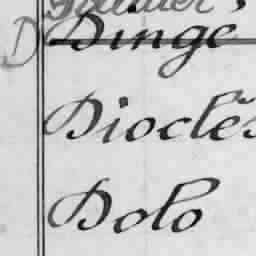 D Dinge
Dioclès
Dolo